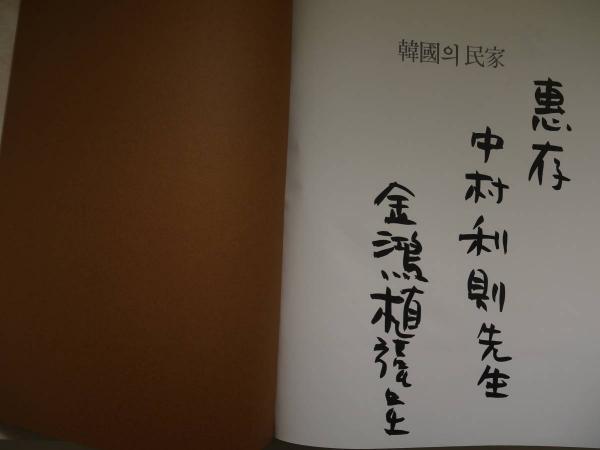 韓國의 民家
惠存
中村利則先生
金鴻植謹呈